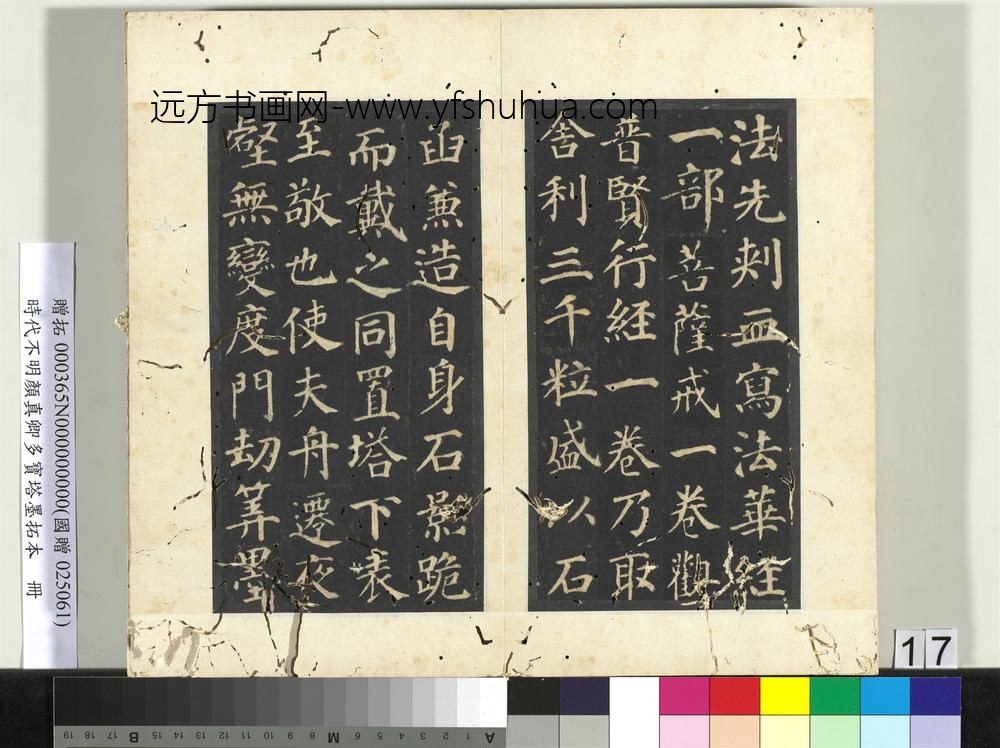 远方书画网-www.yfshuhua.com
法先刾血寫法華經
一部菩薩戒一卷觀
普賢行經一卷乃取
舍利三千粒盛以石
函兼造自身石影跪
而戴之同置塔下表
至敬也使夫舟遷夜
壑無變度門劫筭墨
贈拓 000365N000000000(國贈 025061)
時代不明顏真卿多寶塔墨拓本 冊
17
A 1 2 3 4 5 6 7 8 M 9 10 11 12 13 14 15 B 16 17 18 19